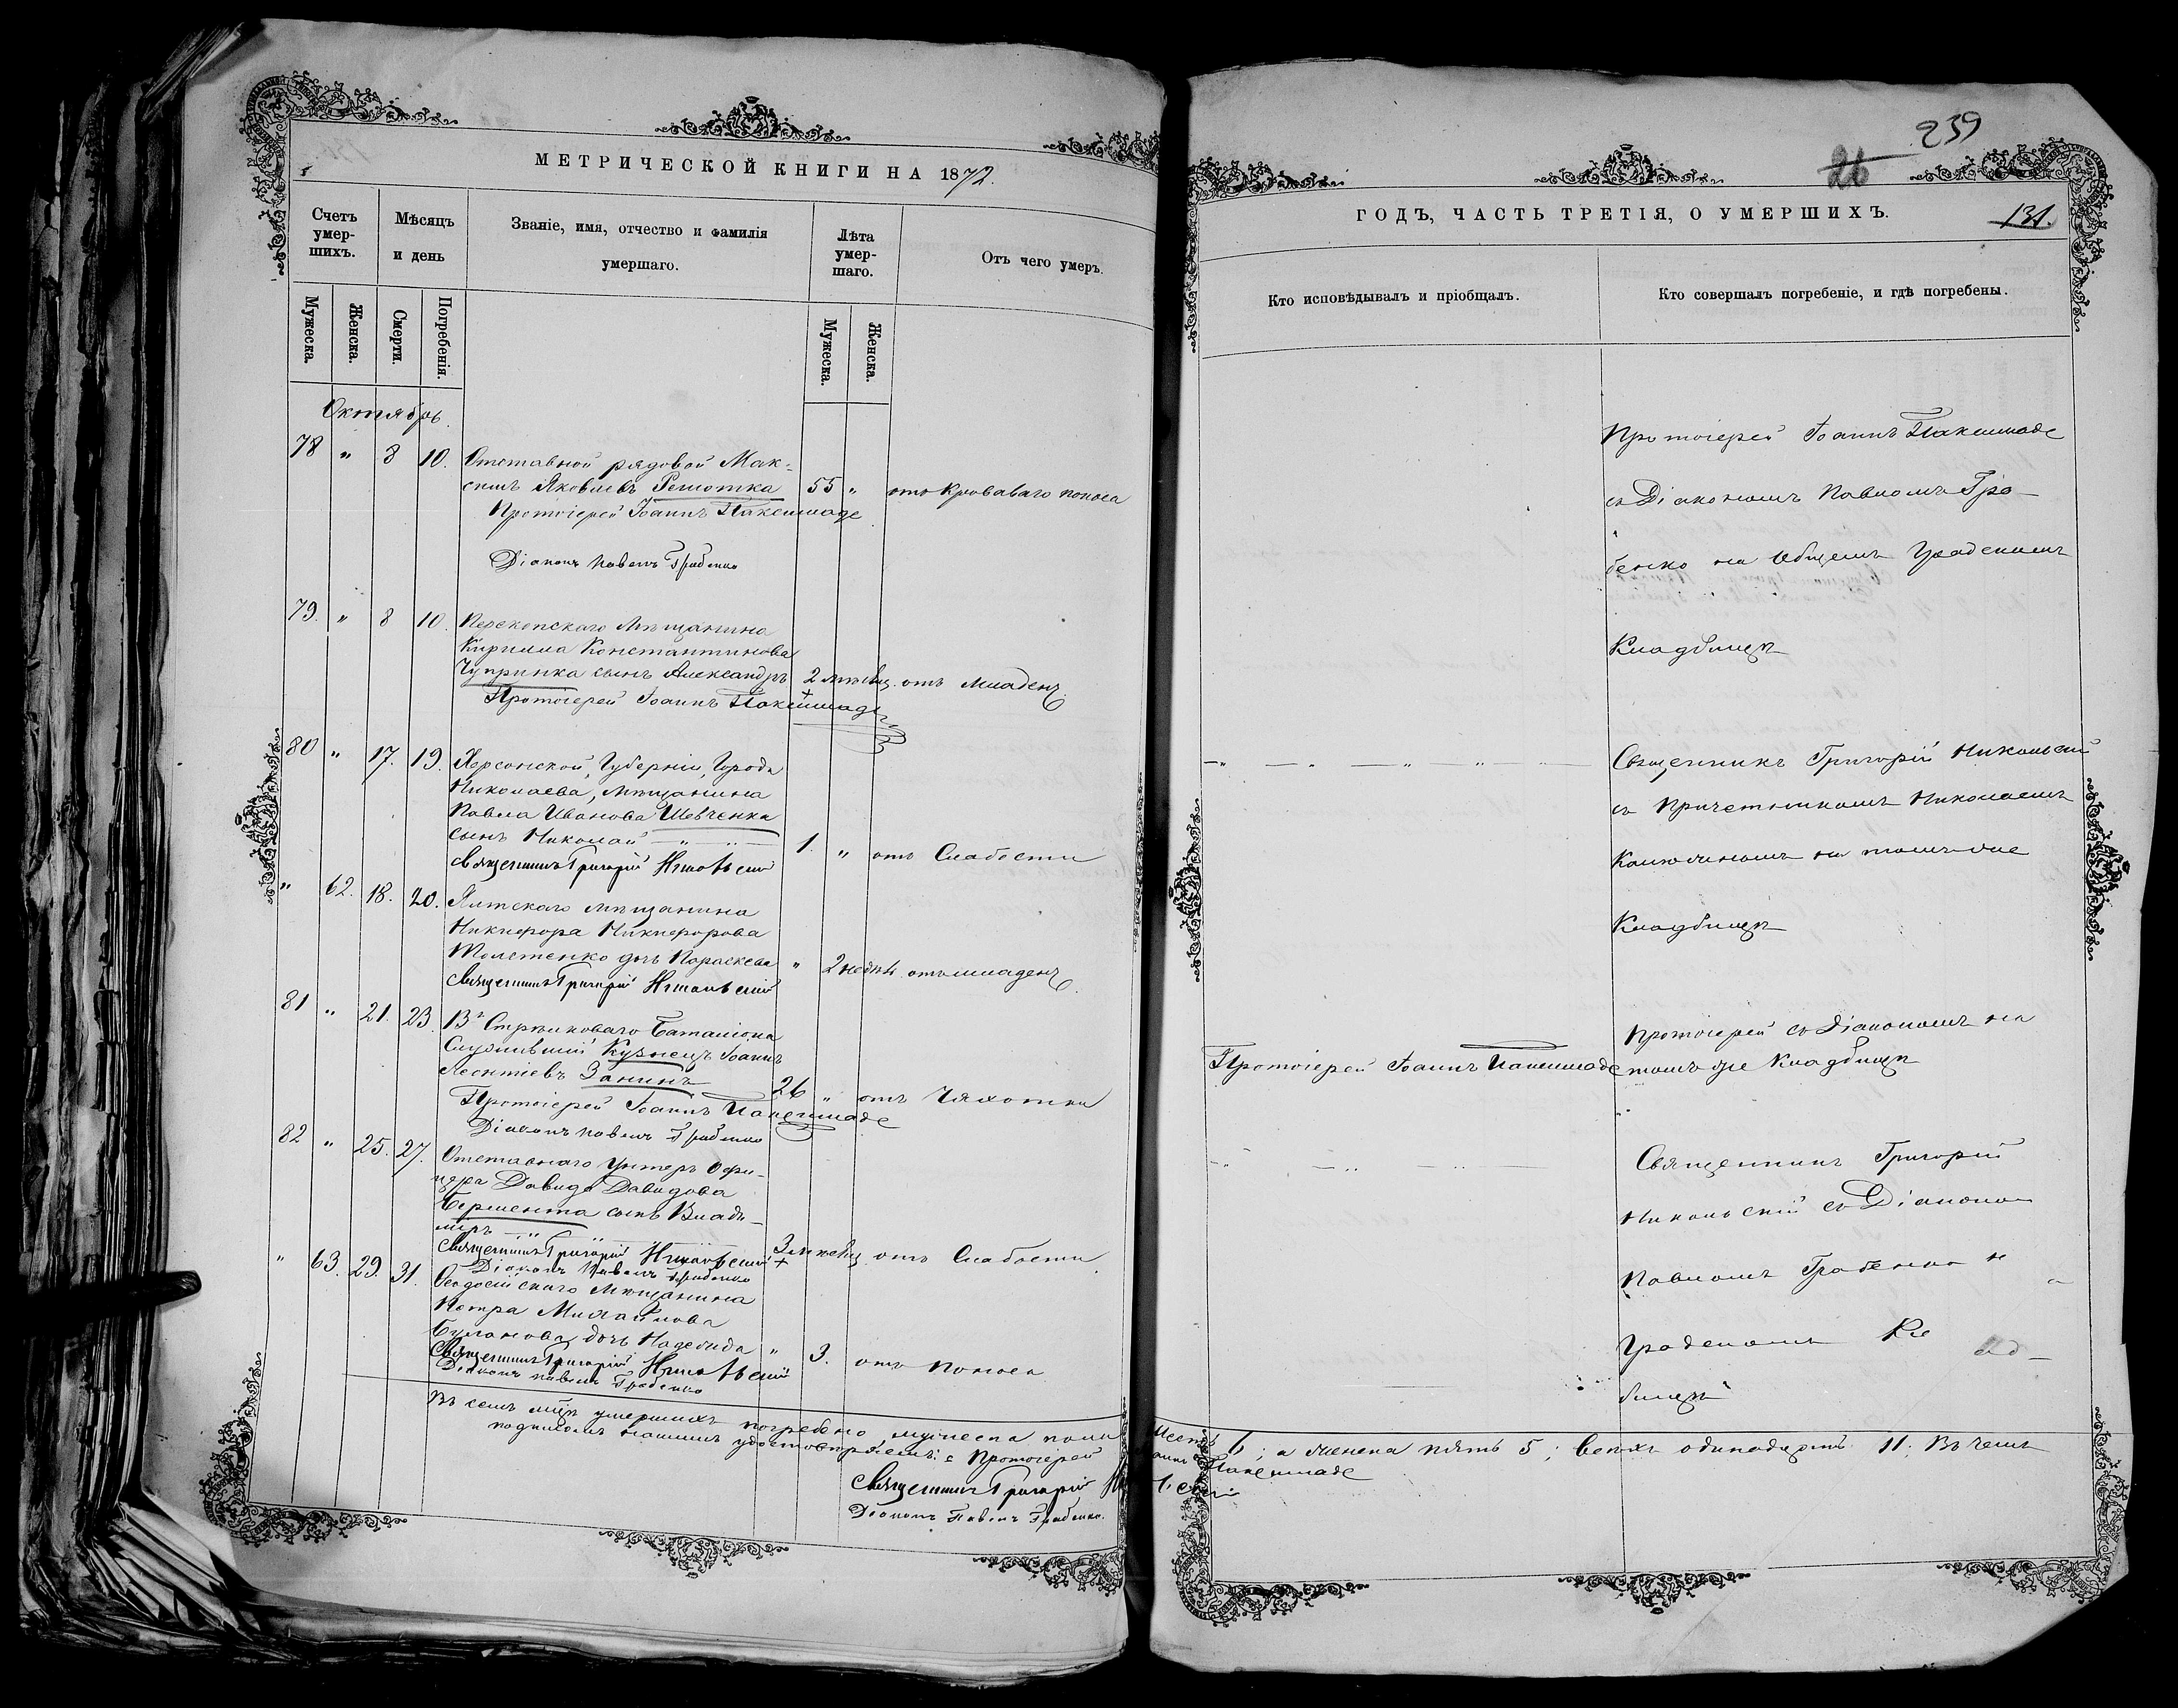 МЕТРИЧЕСКОЙ КНИГИ НА 1872.
Счетъ умер-шихъ.
Мѣсяцъ и день
Званіе, имя, отчество и фамилія умершаго.
Лѣта умер-шаго.
Отъ чего умеръ.
Мужеска.
Женска.
Смерти.
Погребенія.
Мужеска.
Женска.
Октябрь
78 " 8 10. Отставной рядовой Мак-
симъ Яковлевъ Решотка 55 " отъ Кроваваго поноса
Протоіерей Іоаннъ Пакешнаде
Діаконъ Павелъ Грабенко
79. " 8 10. Перекопскаго мѣщанина
Кирилла Константинова
Чупринка сынъ Александръ 2 мѣсяц. отъ младенч.
Протоіерей Іоаннъ
80 " 17. 19. Херсонской, Губерніи, Города
Николаева, мѣщанина
Павла Иванова Шевченка
сынъ Николай 1. " отъ Слабости
Священникъ Григорій Никольскій
" 62. 18. 20. Ялтскаго мѣщанина
Никифора Никифорова
дочь Параскева " 2 недѣл. отъ младенч.
Священникъ Григорій Никольскій
81 " 21. 23. Стрѣлковаго Баталіона
Служившій Кузнецъ Іоаннъ
Леонтіевъ Занинъ 26 " отъ Чахотки
Протоіерей Іоаннъ
Діаконъ Павелъ Грабенко
82 " 25. 27. Отставнаго Унтеръ Офи-
цера Давида Давидова
сынъ Влади-
міръ 3 мѣсяц. отъ Слабости
Священникъ Григорій Никольскій
Діаконъ Павелъ Грабенко
" 63. 29. 31. Ѳеодосійскаго Мѣщанина
Петра Михайлова
Буланова дочь Надежда " 3. отъ Поноса
Священникъ Григорій Никольскій
Діаконъ Павелъ Грабенко
Въ семъ мѣс. умершихъ погребено, мужеска пола
подписомъ нашимъ удостовѣряемъ: Протоіерей
Священникъ Григорій
Діаконъ Павелъ Грабенко.
239
26
ГОДЪ, ЧАСТЬ ТРЕТІЯ, О УМЕРШИХЪ.
131.
Кто исповѣдывалъ и пріобщалъ.
Кто совершалъ погребеніе, и гдѣ погребены.
Протоіерей Іоаннъ
съ Діакономъ Павломъ Гра-
бенко на Общемъ Градскомъ
Кладбищѣ
Священникъ Григорій Никольскій
съ Причетникомъ Николаемъ
на томъ-же
Кладбищѣ
Протоіерей съ Діакономъ на
Протоіерей Іоаннъ
томъ же Кладбищѣ
Священникъ Григорій
Никольскій съ Діакономъ
Павломъ Грабенко н
а
Градскомъ Кл
ад-
бищѣ
6; а женска пять 5; всѣхъ одинадцать 11; Въ чемъ